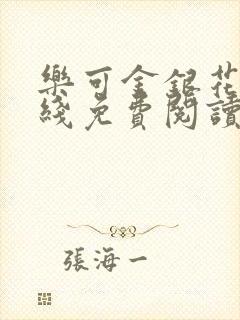 樂可金銀花
綫免費閱讀
張海一